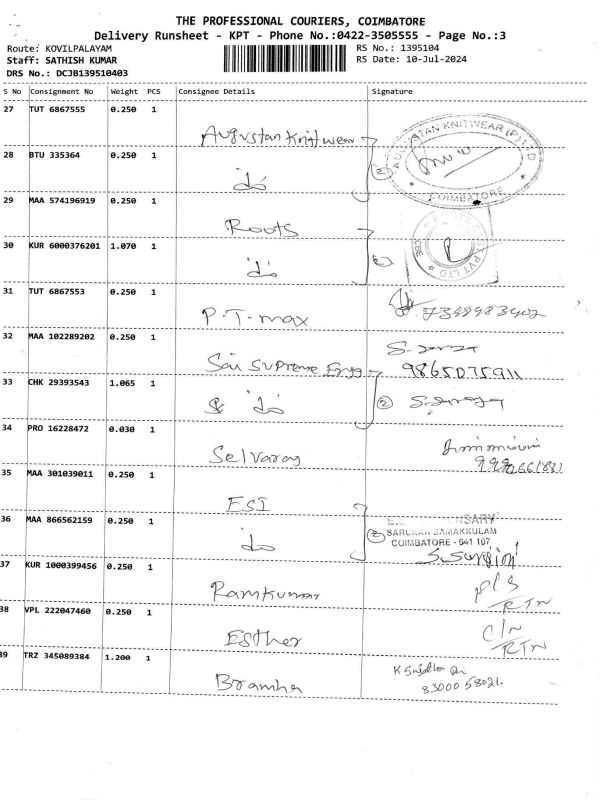 THE PROFESSIONAL COURIERS, COIMBATORE
Delivery Runsheet - KPT - Phone No.:0422-3505555 - Page No.:3
Route: KOVILPALAYAM RS No.: 1395104
Staff: SATHISH KUMAR RS Date: 10-Jul-2024
DRS No.: DCJB139510403
S No Consignment No Weight PCS Consignee Details Signature
27 TUT 6867555 0.250 1
Augustan Knitwear
AUGUSTAN KNITWEAR (P) LTD
COIMBATORE
28 BTU 335364 0.250 1
do 2
29 MAA 574196919 0.250 1
Roots
30 KUR 6000376201 1.070 1
do
PVT LTD
CBE
31 TUT 6867553 0.250 1
P.T.max
32 MAA 102289202 0.250 1
Sai Supreme Engg 9865075911
33 CHK 29393543 1.065 1
& do 2
34 PRO 16228472 0.030 1
Selvaraj
35 MAA 301039011 0.250 1
ESI
36 MAA 866562159 0.250 1
do
SARCKAR SAMAKKULAM
COIMBATORE - 641 107
37 KUR 1000399456 0.250 1
Ramkumar P/S
RTN
38 VPL 222047460 0.250 1
Esther C/N
RTN
39 TRZ 345089384 1.200 1
Bramha 83000 58021.